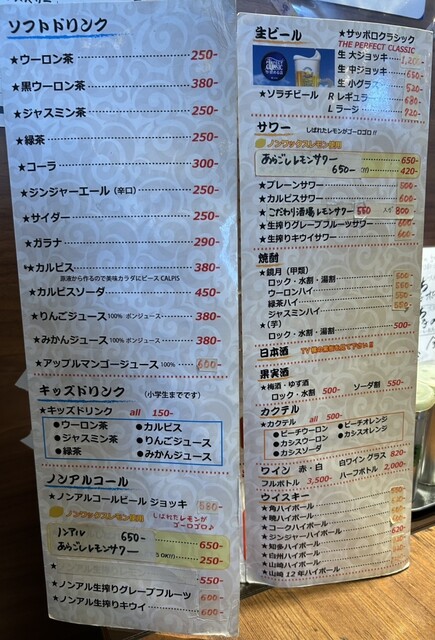 ソフトドリンク
★ウーロン茶 250-
★黒ウーロン茶 380-
★ジャスミン茶 250-
★緑茶 250-
★コーラ 300-
★ジンジャーエール (辛口) 250-
★サイダー 250-
★ガラナ 290-
★カルピス 380-
原液から作るので美味カラダにピース CALPIS
★カルピスソーダ 450-
★りんごジュース 100% ポンジュース 380-
★みかんジュース 100% ポンジュース 380-
★アップルマンゴージュース 100% 600-
キッズドリンク (小学生までです)
★キッズドリンク all 150-
●ウーロン茶 ●カルピス
●ジャスミン茶 ●りんごジュース
●緑茶 ●みかんジュース
ノンアルコール
★ノンアルコールビール ジョッキ
ノンワックスレモン使用
しばれたレモンがゴーロゴロ♪
ノンアル 650- 650-
あらごしレモンサワー 250-
★ 550-
★ノンアル生搾りグレープフルーツ 600-
★ノンアル生搾りキウイ 600-
生ビール
★サッポロクラシック
THE PERFECT CLASSIC
生 大ジョッキ
生 中ジョッキ
生 小グラス 520-
★ソラチビール R レギュラー 680-
L ラージ 920-
サワー しばれたレモンがゴーロゴロ!!
ノンワックスレモン使用
あらごしレモンサワー 650-
650- 420-
★プレーンサワー 500-
★カルピスサワー 600-
★こだわり酒場レモンサワー 550 800-
★生搾りグレープフルーツサワー 600-
★生搾りキウイサワー 600-
焼酎
★鏡月 (甲類)
ロック・水割・湯割 500-
ウーロンハイ
緑茶ハイ
ジャスミンハイ
★(芋)
ロック・水割・湯割 500-
日本酒
果実酒
★梅酒・ゆず酒
ロック・水割 500- ソーダ割 550-
カクテル
★カクテル all 500-
●ピーチウーロン ●ピーチオレンジ
●カシスウーロン ●カシスオレンジ
●カシスソーダ
ワイン 赤・白 白ワイン グラス 820-
フルボトル 3,500- ハーフボトル 2,000-
ウイスキー
★角ハイボール
★暁ハイボール
★コークハイボール
★ジンジャーハイボール 620-
★知多ハイボール
★白州ハイボール
★山崎ハイボール
★山崎12年ハイボール